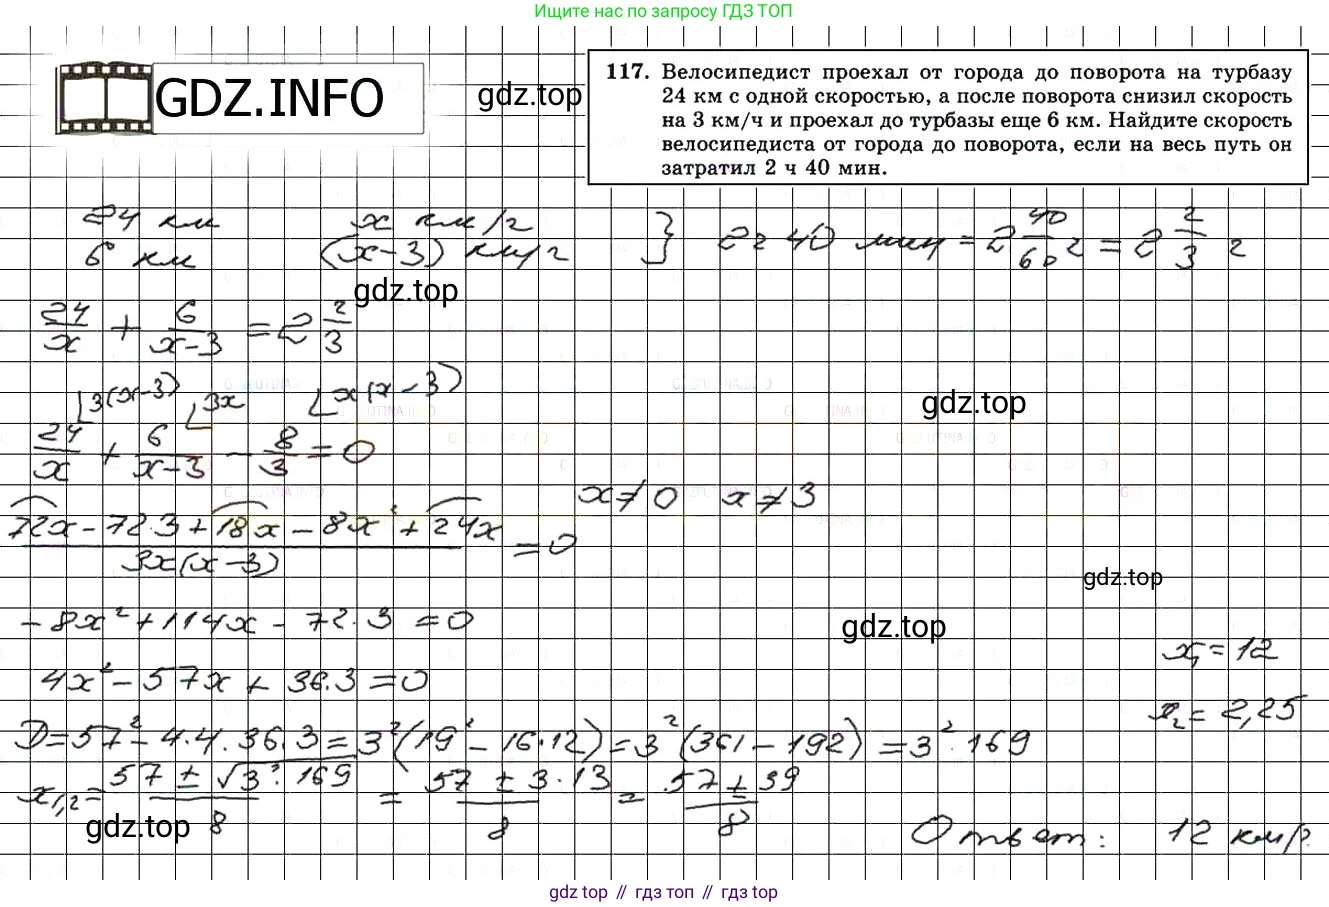 Ищите нас по запросу ГДЗ ТОП
GDZ.INFO
gdz.top
117. Велосипедист проехал от города до поворота на турбазу
24 км с одной скоростью, а после поворота снизил скорость
на 3 км/ч и проехал до турбазы еще 6 км. Найдите скорость
велосипедиста от города до поворота, если на весь путь он
затратил 2 ч 40 мин.
24 км x км/ч } 2 ч 40 мин = 2 40/60 ч = 2 2/3 ч
6 км (x-3) км/ч
gdz.top
24/x + 6/(x-3) = 2 2/3
3(x-3) 3x x(x-3)
gdz.top
24/x + 6/(x-3) - 8/3 = 0
x≠0 x≠3
(72x - 72·3 + 18x - 8x² + 24x)/(3x(x-3)) = 0
gdz.top
-8x² + 114x - 72·3 = 0
gdz.top
x₁ = 12
4x² - 57x + 36·3 = 0
x₂ = 2,25
D = 57² - 4·4·36·3 = 3²(19² - 16·12) = 3²(361 - 192) = 3²·169
x₁,₂ = (57 ± √3²·169)/8 = (57 ± 3·13)/8 = (57 ± 39)/8
gdz.top
Ответ: 12 км/ч.
gdz top // гдз топ // гдз top